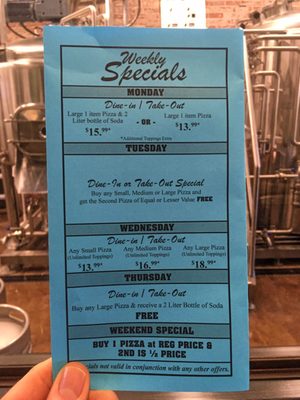 Weekly
Specials
MONDAY
Dine-in / Take-Out
Large 1 item Pizza & 2
Liter bottle of Soda
$15.99*
- OR -
Large 1 item Pizza
$13.99*
*Additional Toppings Extra
TUESDAY
Dine-In or Take-Out Special
Buy any Small, Medium or Large Pizza and
get the Second Pizza of Equal or Lesser Value FREE
WEDNESDAY
Dine-in / Take-Out
Any Small Pizza
(Unlimited Toppings)
$13.99*
Any Medium Pizza
(Unlimited Toppings)
$16.99*
Any Large Pizza
(Unlimited Toppings)
$18.99*
THURSDAY
Dine-in / Take-Out
Buy any Large Pizza & receive a 2 Liter Bottle of Soda
FREE
WEEKEND SPECIAL
BUY 1 PIZZA at REG PRICE &
2ND IS ½ PRICE
ecials not valid in conjunction with any other offers.